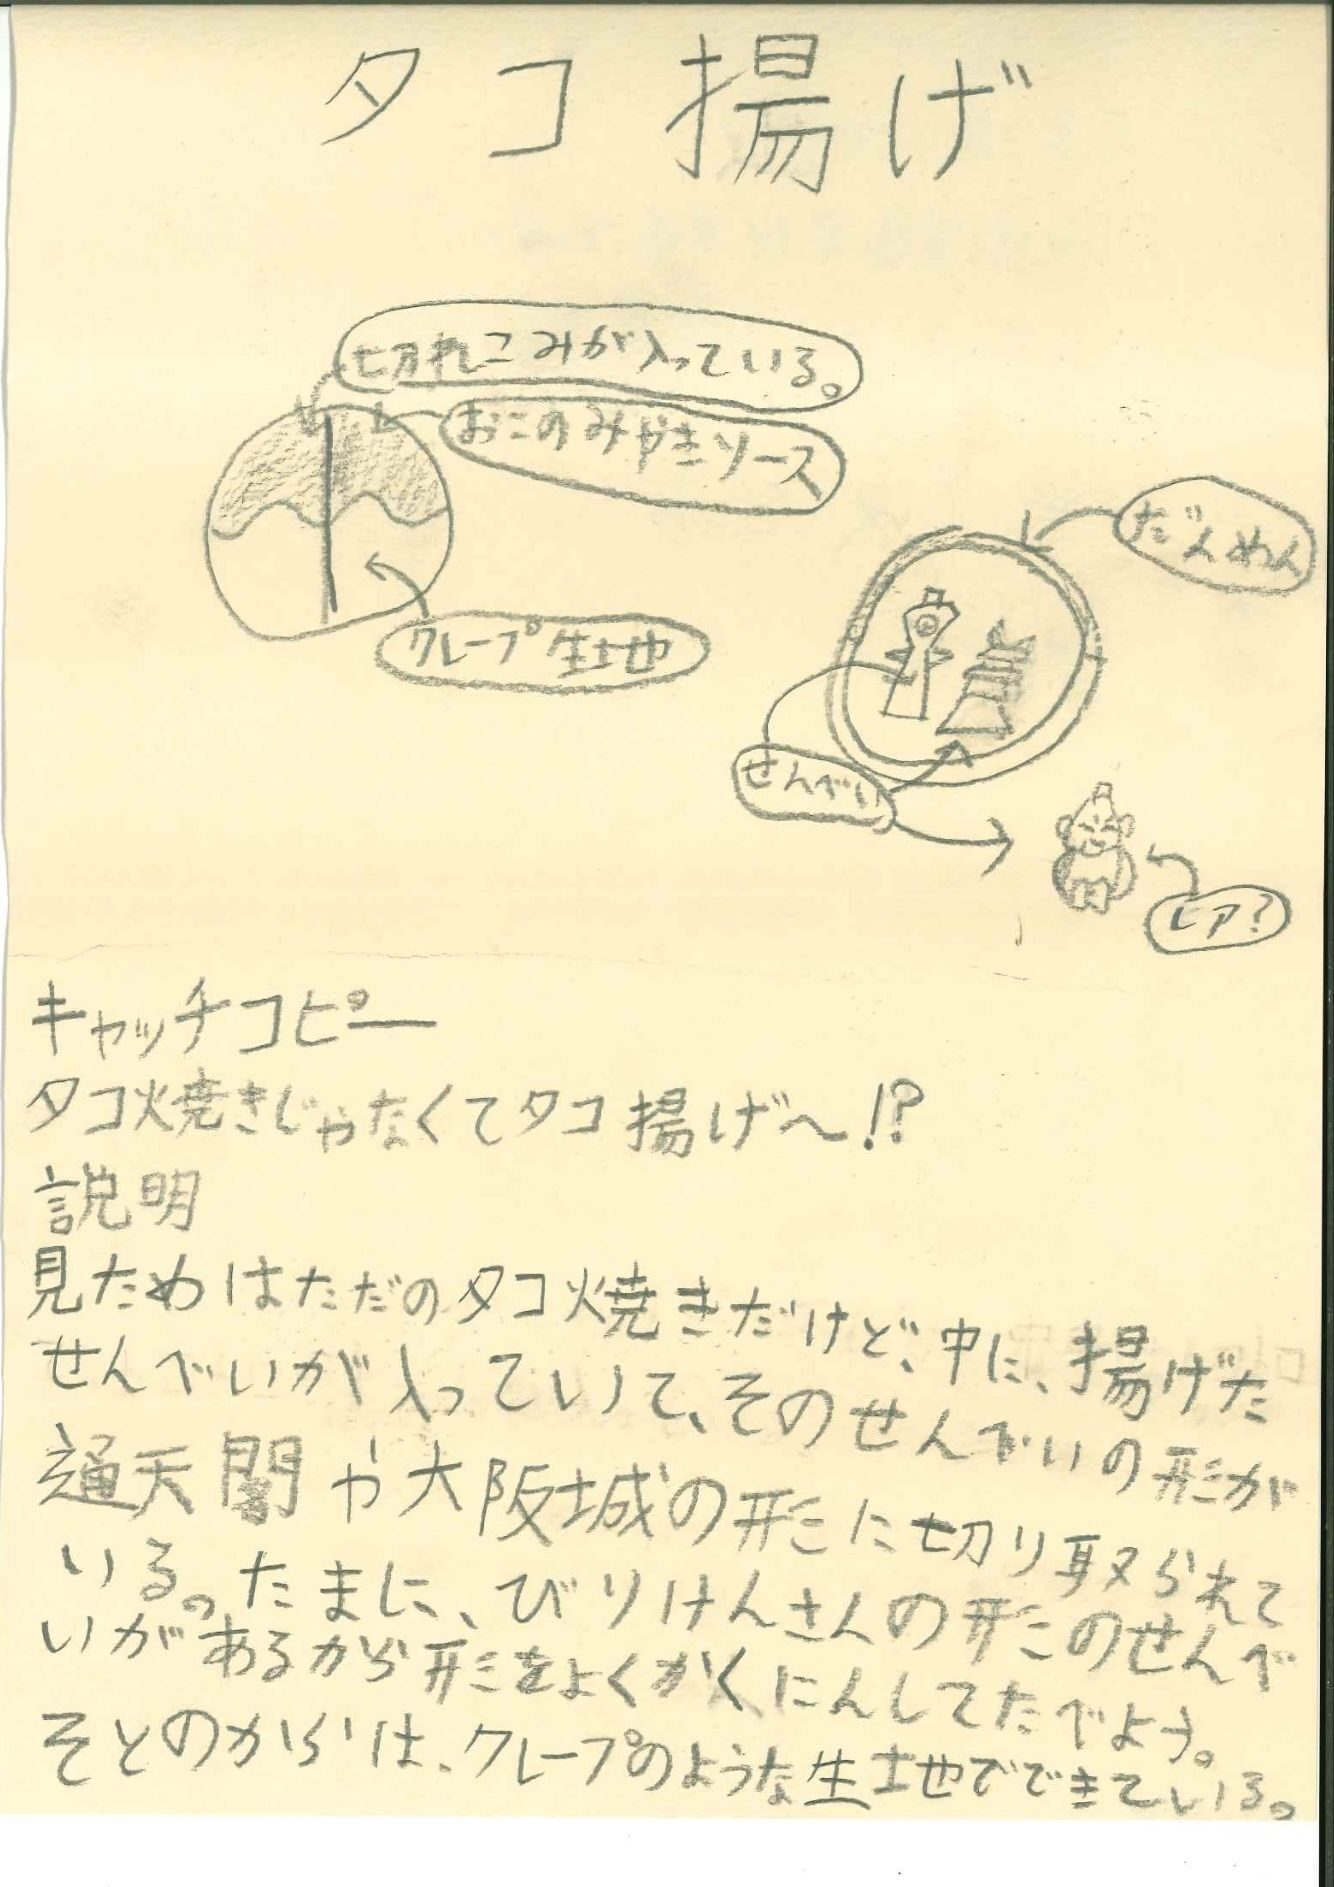 タコ揚げ
切れこみが入っている。
おこのみやきソース
クレープ生地
だんめん
せんべい
レア?
キャッチコピー
タコ焼きじゃなくてタコ揚げ〜!?
説明
見ためはただのタコ焼きだけど、中に、揚げた
せんべいが入っていて、そのせんべいの形が
通天閣や大阪城の形に切り取られて
いる。たまに、びりけんさんの形のせんべ
いがあるから形をよくかくにんしてたべよう。
そとのからは、クレープのような生地でできている。